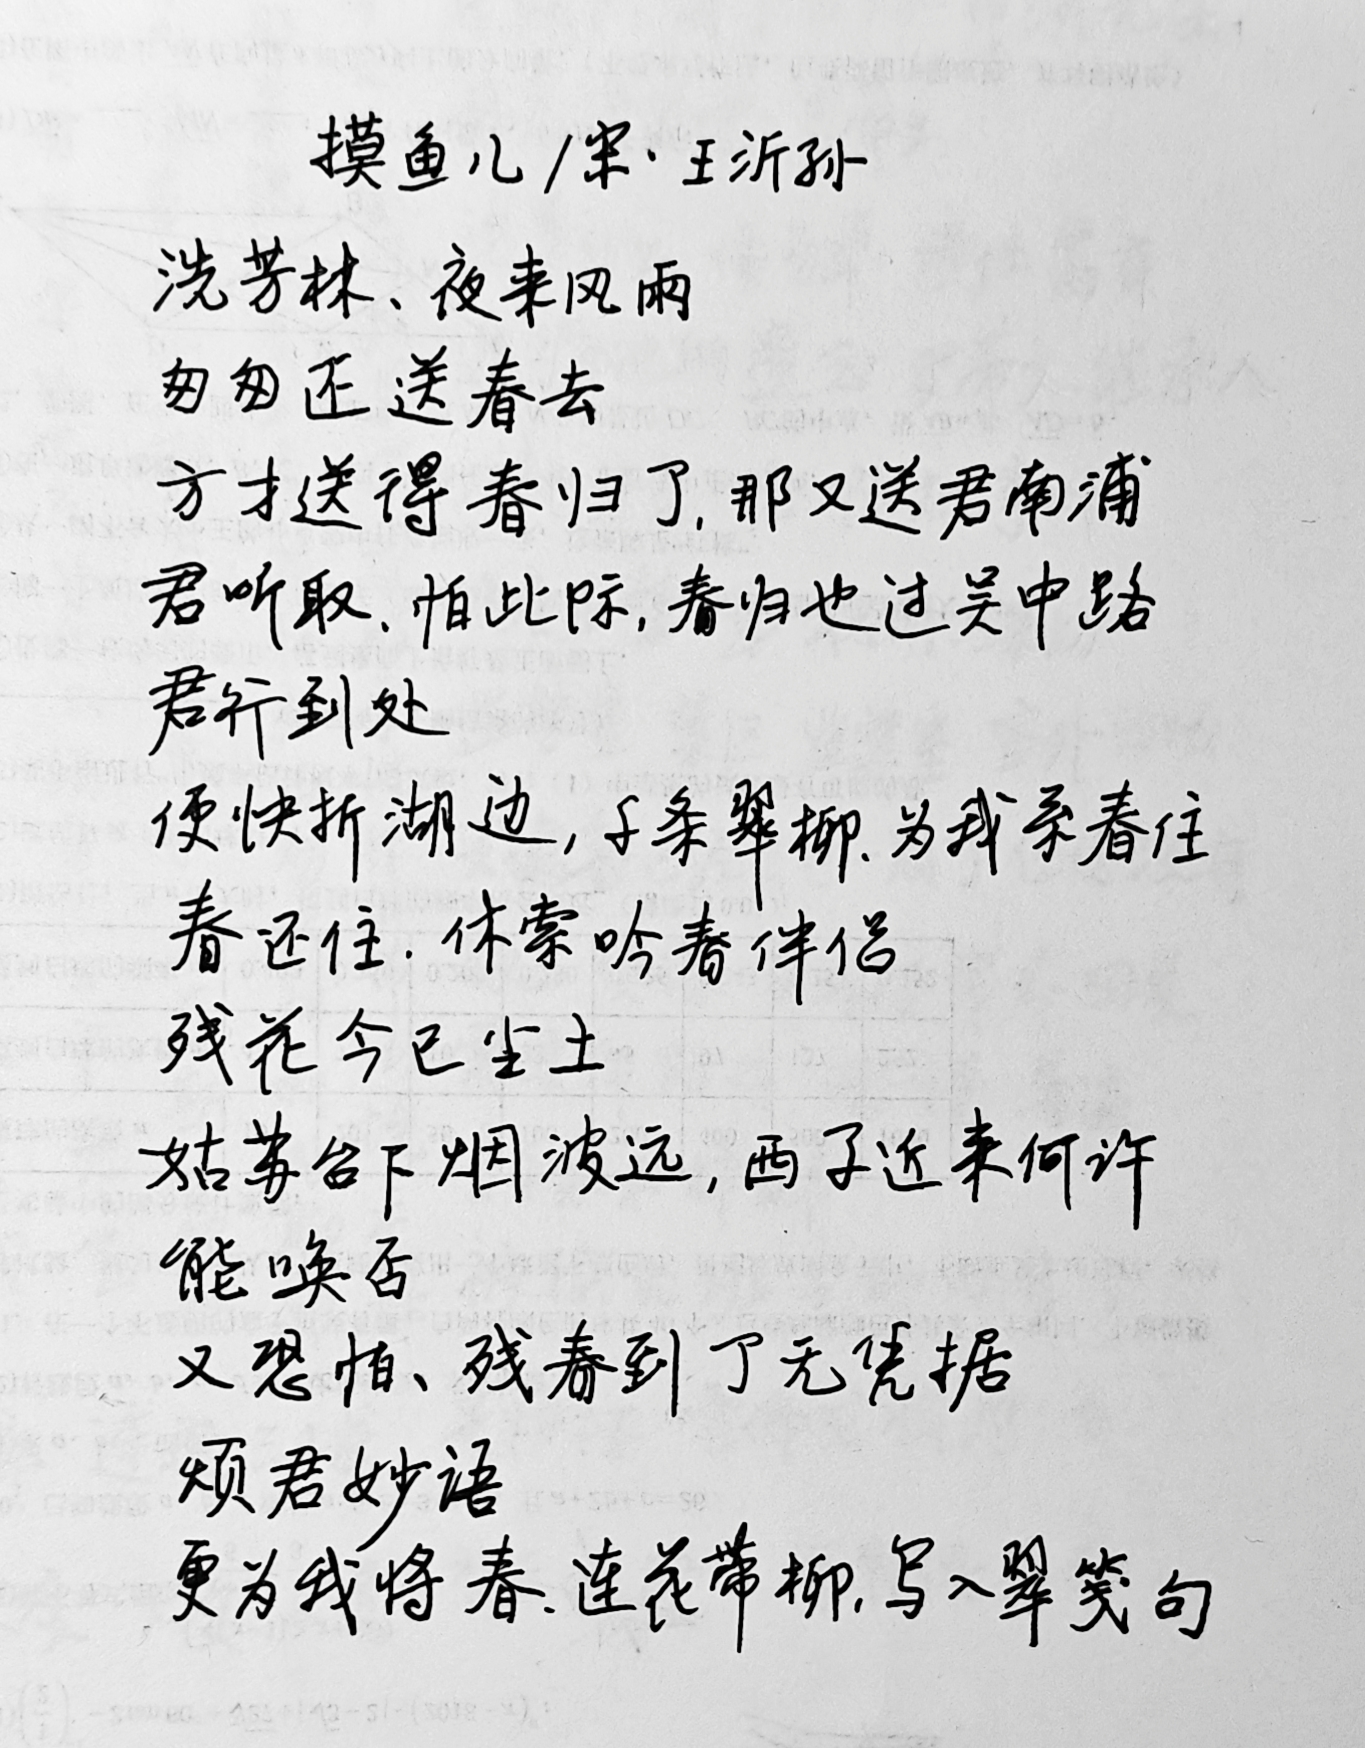 摸鱼儿/宋·王沂孙
洗芳林、夜来风雨
匆匆还送春去
方才送得春归了,那又送君南浦
君听取、怕此际,春归也过吴中路
君行到处
便快折湖边,千条翠柳、为我系春住
春还住.休索吟春伴侣
残花今已尘土
姑苏台下烟波远,西子近来何许
能唤否
又恐怕、残春到了无凭据
烦君妙语
更为我将春、连花带柳,写入翠笺句